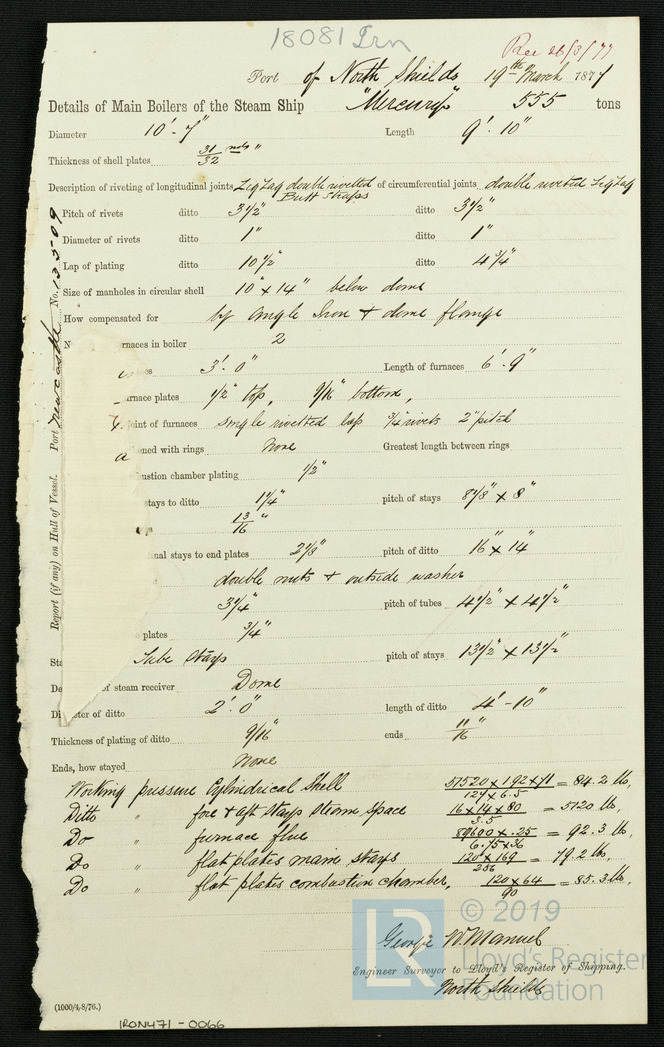 18081 Irn
Rec 26/3/77
Port of North Shields 19th March 1877
Details of Main Boilers of the Steam Ship "Mercury" 555 tons
Diameter 10'-7" Length 9'-10"
Thickness of shell plates 31/32 "
Description of riveting of longitudinal joints Zig Zag double rivetted of circumferential joints double riveted Zig Zag
Butt Straps
Pitch of rivets ditto 3 1/2" ditto 3 1/2"
Diameter of rivets ditto 1" ditto 1"
Lap of plating ditto 10 1/2" ditto 4 3/4"
Size of manholes in circular shell 10" x 14" below dome
How compensated for by angle Iron + dome flange
N rnaces in boiler 2
3'-0" Length of furnaces 6'-9"
urnace plates 1/2" top, 9/16" bottom,
joint of furnaces single rivetted lap 3/4 rivets 2" pitch
ened with rings None Greatest length between rings
bustion chamber plating 1/2"
stays to ditto 1 1/4" pitch of stays 8 7/8" x 8"
13/16"
nal stays to end plates 2 1/8" pitch of ditto 16" x 14"
double nuts + outside washer
3 1/4" pitch of tubes 4 1/2" x 4 1/2"
plates 3/4"
Sta Tube stays pitch of stays 13 1/2" x 13 1/2"
De of steam receiver Dome
Diameter of ditto 2'-0" length of ditto 4'-10"
Thickness of plating of ditto 9/16" ends 11/16"
Ends, how stayed None
Working pressure Cylindrical Shell 57520 x 1.92 x 71 / 127 x 6.5 = 84.2 lb,
Ditto " fore + aft stays steam space 16 x 14 x 80 / 3.5 = 5120 lb,
Do " furnace flue 89600 x .25 / 6.75 x 36 = 92.3 lb,
Do " flat plates main stays 120 x 169 / 256 = 79.2 lb,
Do " flat plates combustion chamber, 120 x 64 / 90 = 85.3 lb,
George W. Manuel
Engineer Surveyor to Lloyd's Register of Shipping.
North Shields
(1000/4/8/76.)
IRON471-0066
Report (if any) on Hull of Vessel. Port Newcastle No. 13509
LR © 2019
Lloyd's Register
Foundation